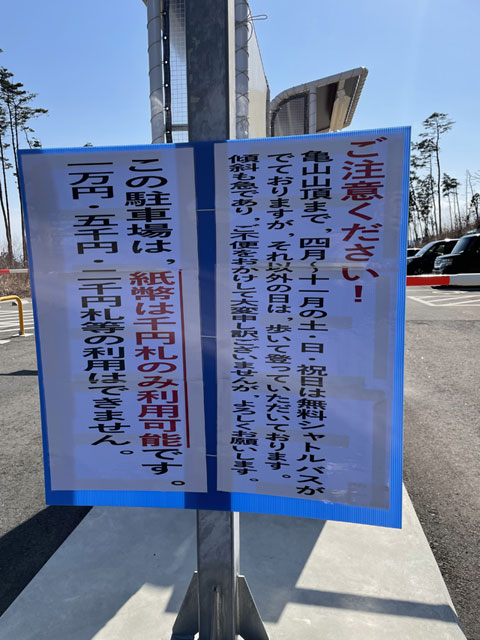 ご注意ください!
亀山山頂まで、四月～十一月の土・日・祝日は無料シャトルバスが
でておりますが、それ以外の日は、歩いて登っていただいております。
傾斜も急であり、ご不便をおかけして大変申し訳ございませんが、よろしくお願いします。
この駐車場は、紙幣は千円札のみ利用可能です。
一万円・五千円・二千円札等の利用はできません。